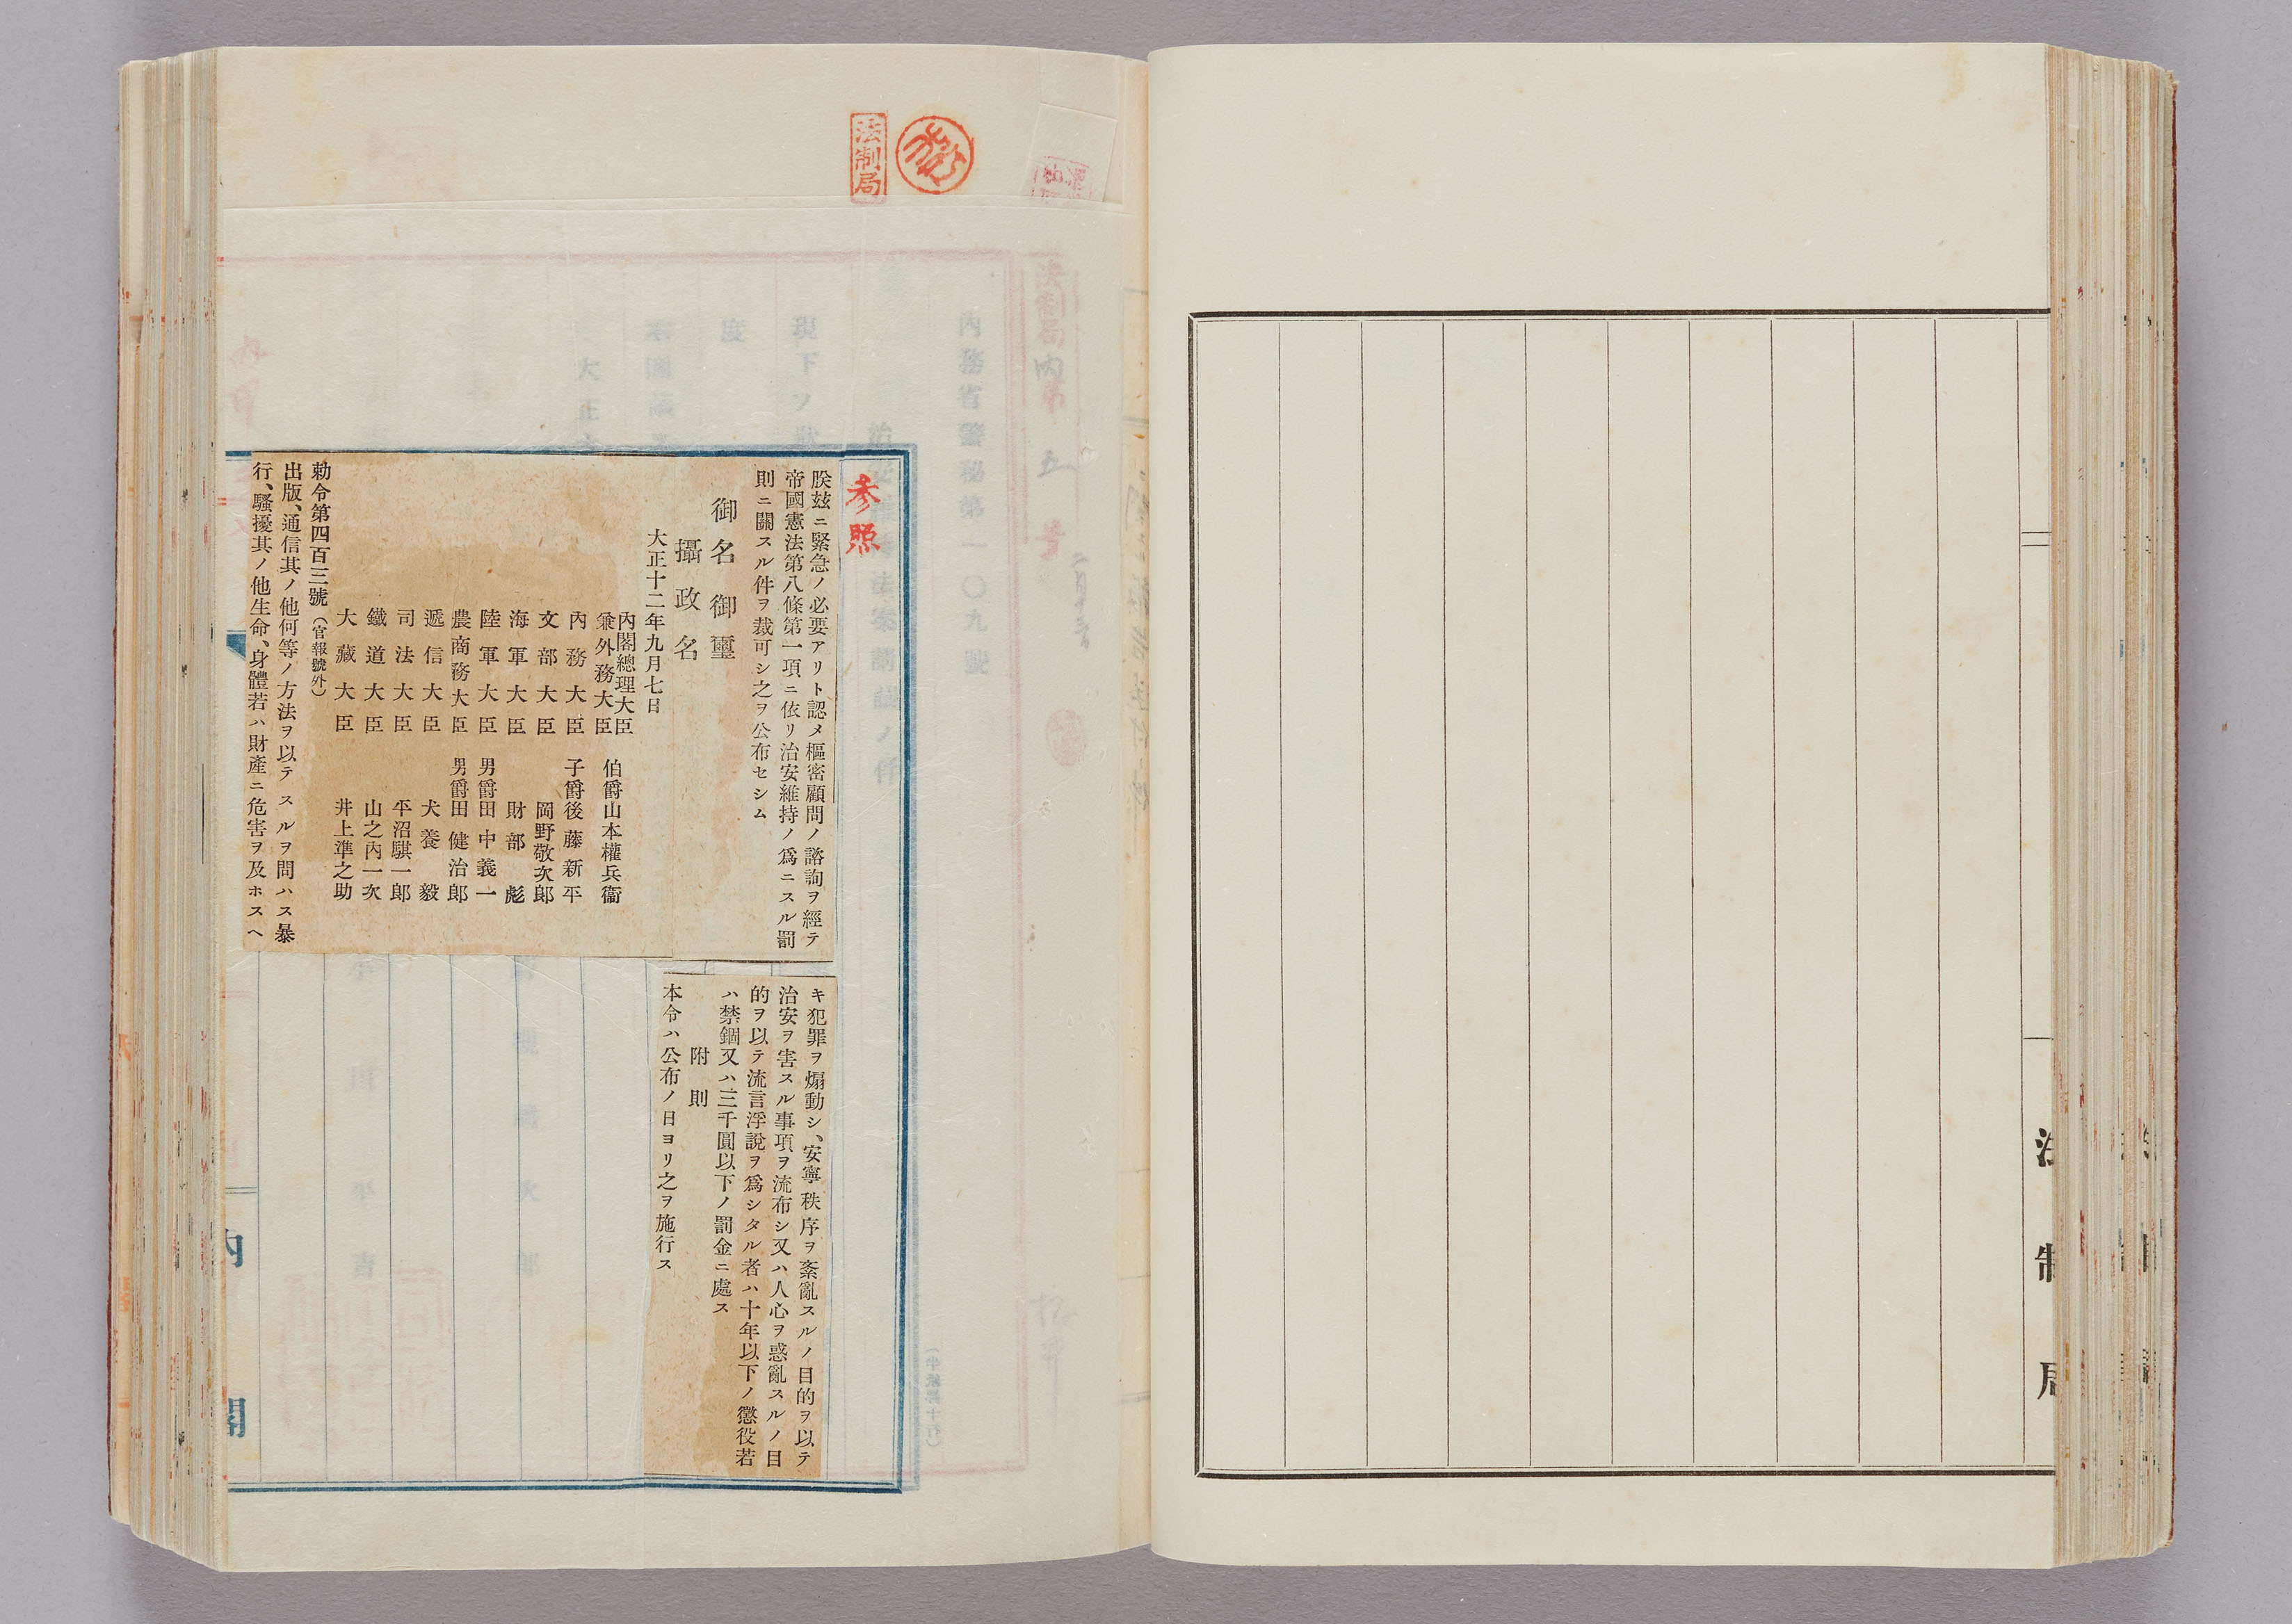 法制局
法制局
參照
朕玆ニ緊急ノ必要アリト認メ樞密顧問ノ諮詢ヲ經テ
帝國憲法第八條第一項ニ依リ治安維持ノ爲ニスル罰
則ニ關スル件ヲ裁可シ之ヲ公布セシム
御名御璽
攝政名
大正十二年九月七日
內閣總理大臣
兼外務大臣 伯爵山本權兵衞
內務大臣 子爵後藤新平
文部大臣 岡野敬次郎
海軍大臣 財部彪
陸軍大臣 男爵田中義一
農商務大臣 男爵田健治郎
遞信大臣 犬養毅
司法大臣 平沼騏一郎
鐵道大臣 山之內一次
大藏大臣 井上準之助
勅令第四百三號(官報號外)
出版、通信其ノ他何等ノ方法ヲ以テスルヲ問ハス暴
行、騷擾其ノ他生命、身體若ハ財產ニ危害ヲ及ホスヘ
キ犯罪ヲ煽動シ、安寧秩序ヲ紊亂スルノ目的ヲ以テ
治安ヲ害スル事項ヲ流布シ又ハ人心ヲ惑亂スルノ目
的ヲ以テ流言浮說ヲ爲シタル者ハ十年以下ノ懲役若
ハ禁錮又ハ三千圓以下ノ罰金ニ處ス
附則
本令ハ公布ノ日ヨリ之ヲ施行ス
內閣